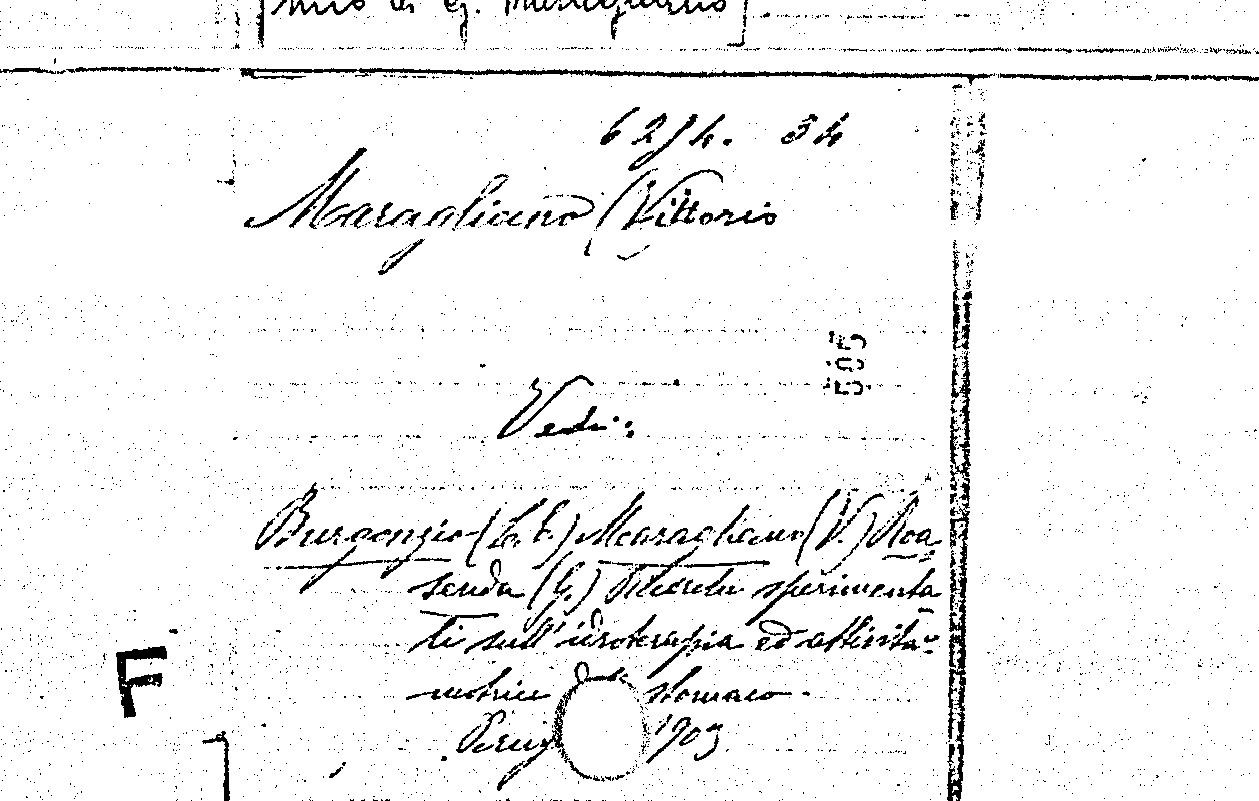 6294. 34
Maragliano (Vittorio
505
Vedi:
Burgonzio (L. C.) Maragliano (V.) Roa-
senda (G.) Ricerche sperimenta
li sull'idroterapia ed attività-
motrice dello stomaco.
1903
F